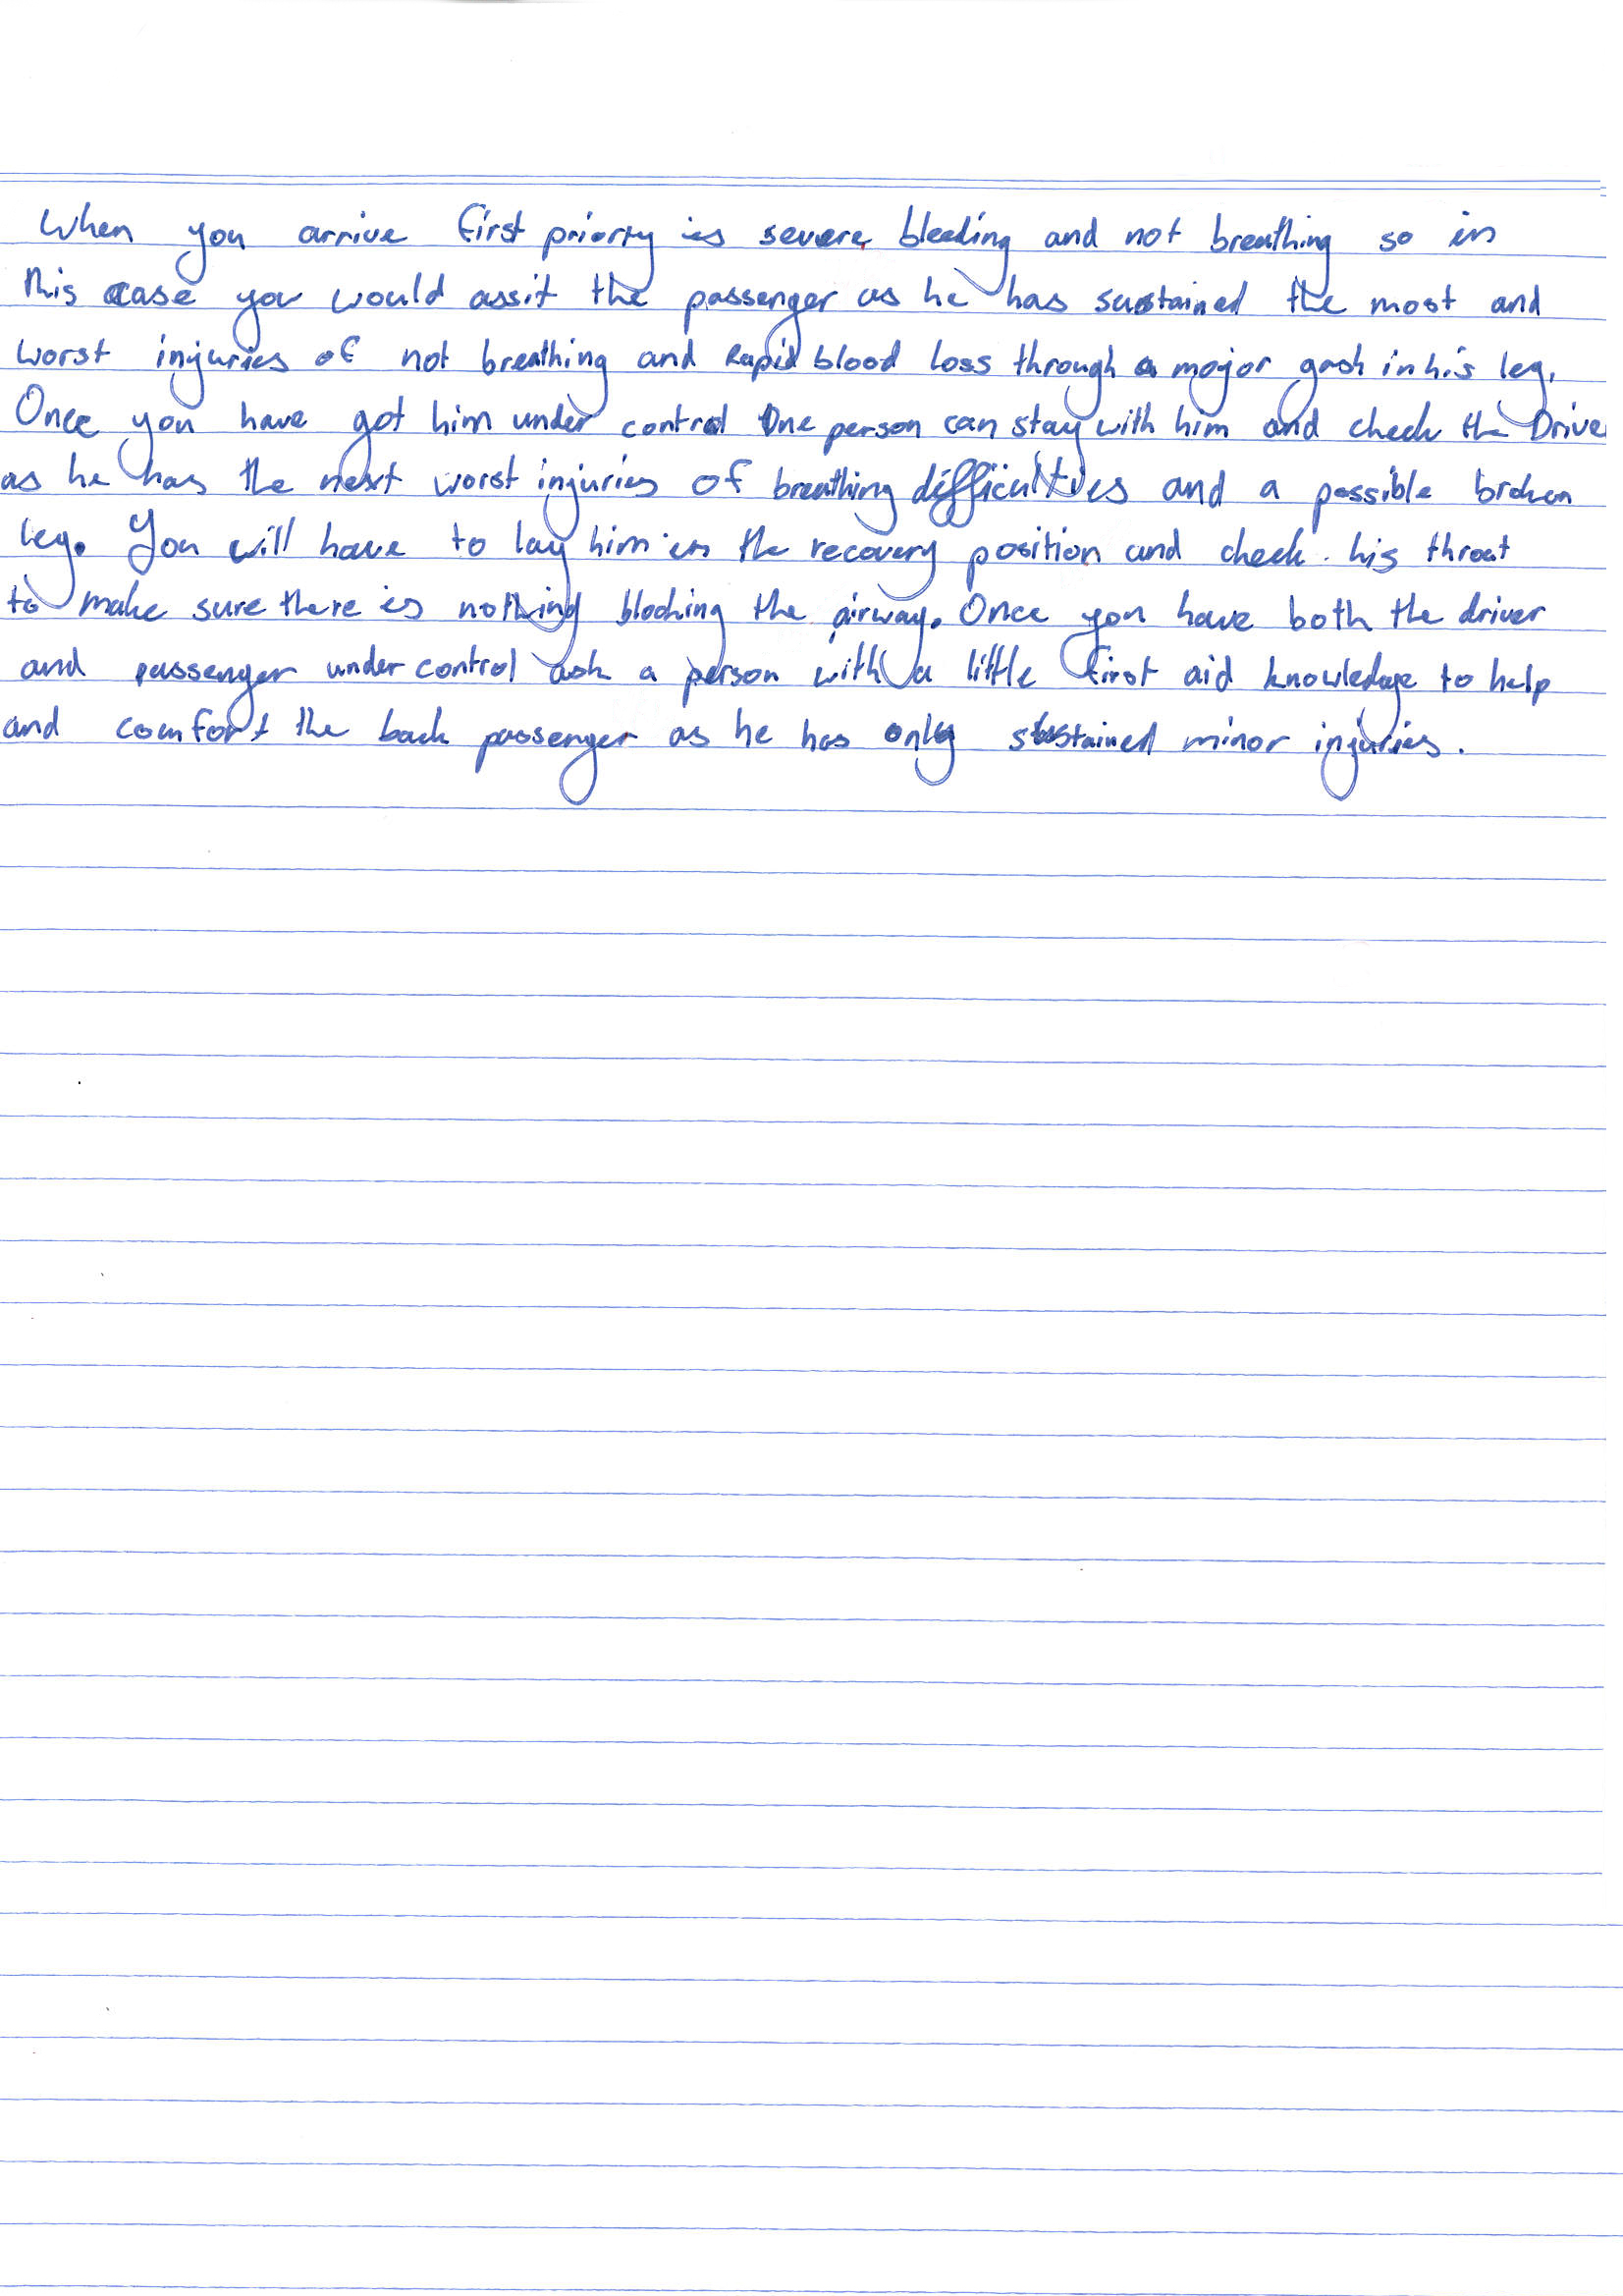 When you arrive first priorty is severe bleeding and not breathing so in
this case you would assit the passenger as he has sustained the most and
worst injuries of not breathing and Rapid blood loss through a major gash in his leg.
Once you have got him under control One person can stay with him and check the Drive
as he has the next worst injuries of breathing difficulties and a possible broken
leg. You will have to lay him in the recovery position and check his throat
to make sure there is nothing blocking the airway. Once you have both the driver
and passenger under control ask a person with a little first aid knowledge to help
and comfort the back passenger as he has only sustained minor injuries.